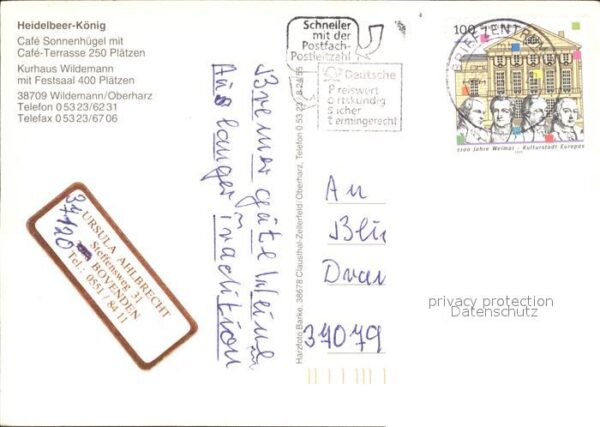 Heidelbeer-König
Café Sonnenhügel mit
Café-Terrasse 250 Plätzen
Kurhaus Wildemann
mit Festsaal 400 Plätzen
38709 Wildemann/Oberharz
Telefon 0 53 23/62 31
Telefax 0 53 23/67 06
37120
URSULA AHLBRECHT
Steffensweg 31
BOVENDEN
Tel.: 0551 / 84 11
Bremer gute Weine
Aus langer Tradition
Harzfoto Barke, 38678 Clausthal-Zellerfeld/Oberharz, Telefon 0 53 23
Schneller
mit der
Postfach-
Postleitzahl
Deutsche
Preiswert
Ortskundig
Sicher
Termingerecht
100
BRIEFZENTRUM
1100 Jahre Weimar - Kulturstadt Europas
An
37079
privacy protection
Datenschutz